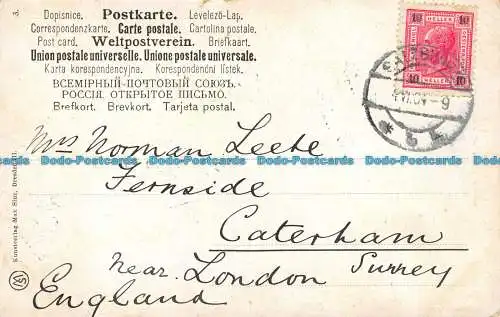 3.
Dopisnice. Postkarte. Levelező-Lap.
Correspondenzkarte. Carte postale. Cartolina postale.
Post card. Weltpostverein. Briefkaart.
Union postale universelle. Unione postale universale.
Karta korespondencyjna. Korespondenční lístek.
ВСЕМІРНЫЙ ПОЧТОВЫЙ СОЮЗЪ.
РОССІЯ. ОТКРЫТОЕ ПИСЬМО.
Brefkort. Brevkort. Tarjeta postal.
10 HELLER 10
10 HELLER 10
Mrs Norman Leete
Fernside
Caterham
near London Surrey
England
Dodo-Postcards Dodo-Postcards Dodo-Postcards Dodo-Postcards